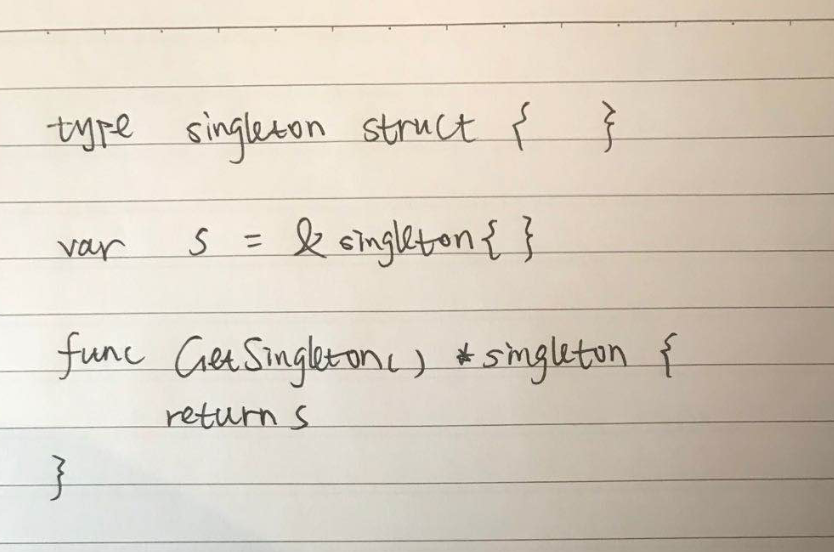 type singleton struct { }
var s = & singleton { }
func GetSingleton() *singleton {
return s
}